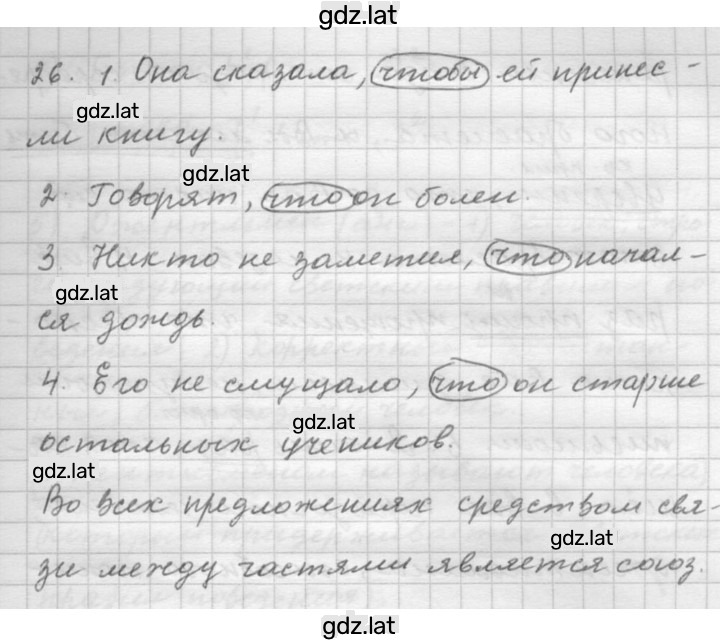 gdz.lat
26. 1. Она сказала, чтобы ей принес-
gdz.lat
ли книгу.
gdz.lat
2. Говорят, что он болен.
3. Никто не заметил, что начал-
gdz.lat
ся дождь.
4. Его не смущало, что он старше
gdz.lat
остальных учеников.
gdz.lat
Во всех предложениях средством свя-
gdz.lat
зи между частями является союз.
gdz.lat